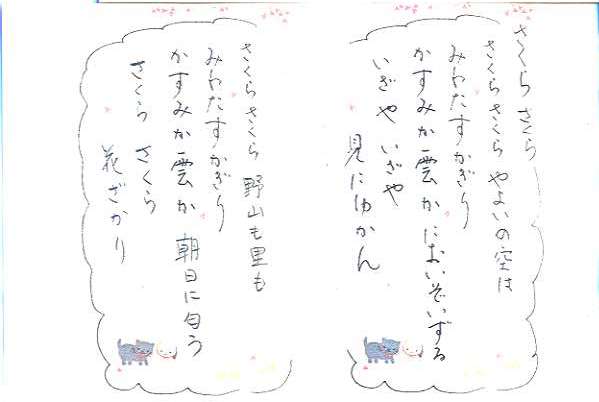 さくら さくら
さくらさくら やよいの空は
みわたすかぎり
かすみか雲か においぞいずる
いざや いざや
見にゆかん
さくらさくら 野山も里も
みわたすかぎり
かすみか雲か 朝日に匂う
さくら さくら
花ざかり